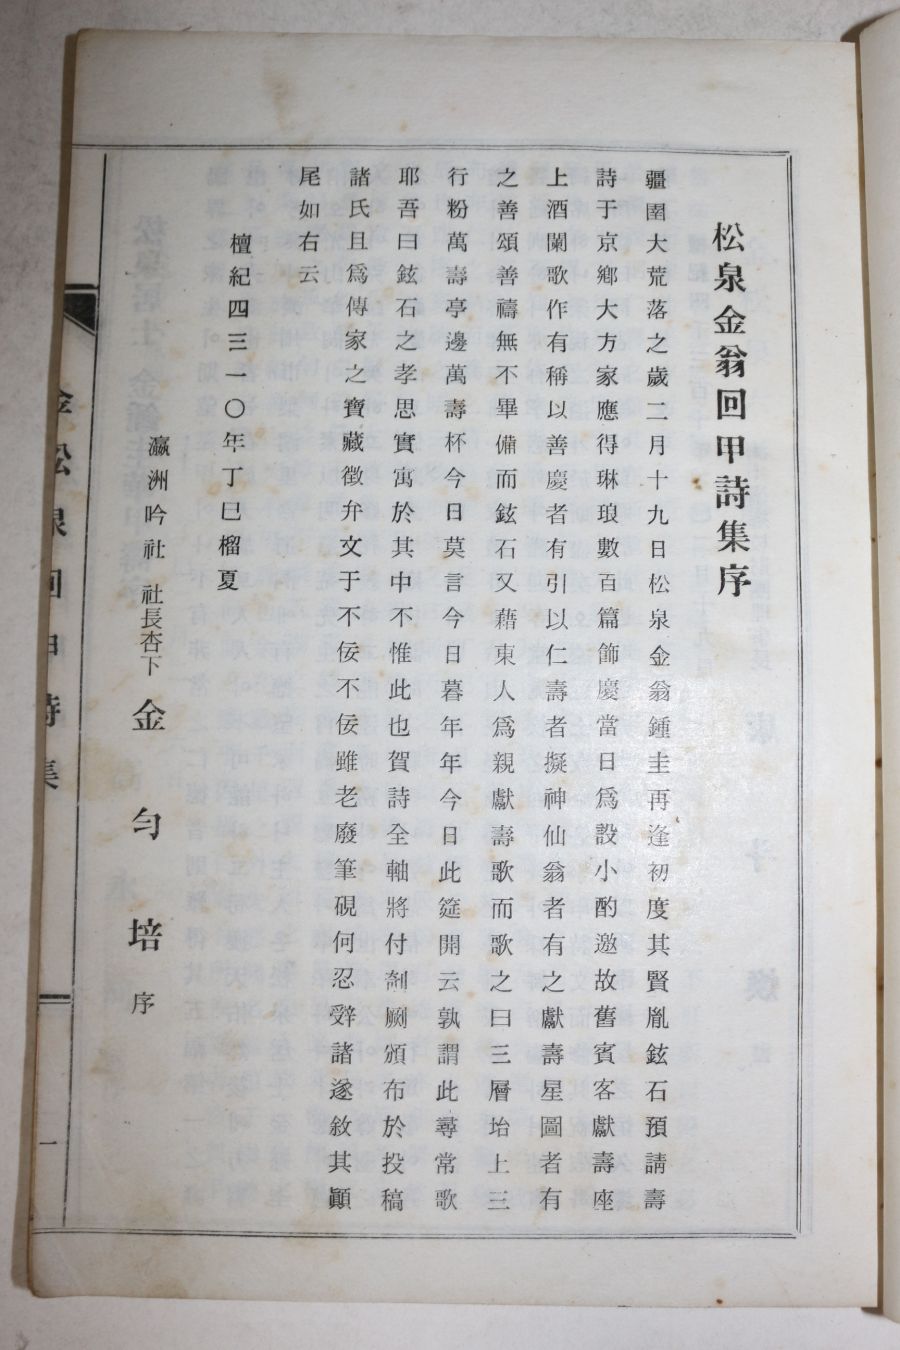 松泉金翁回甲詩集序
疆圉大荒落之歲二月十九日松泉金翁鍾圭再逢初度其賢胤鉉石預請壽
詩于京鄉大方家應得琳琅數百篇飾慶當日爲設小酌邀故舊賓客獻壽座
上酒闌歌作有稱以善慶者有引以仁壽者擬神仙翁者有之獻壽星圖者有
之善頌善禱無不畢備而鉉石又藉東人爲親獻壽歌而歌之曰三層坮上三
行粉萬壽亭邊萬壽杯今日莫言今日暮年年今日此筵開云孰謂此尋常歌
耶吾曰鉉石之孝思實寓於其中不惟此也賀詩全軸將付剞劂頒布於投稿
諸氏且爲傳家之寶藏徵弁文于不佞不佞雖老廢筆硯何忍辤諸遂敘其顚
尾如右云
檀紀四三一〇年丁巳榴夏
瀛洲吟社 社長杏下 金勻培 序
金松泉回甲詩集
一